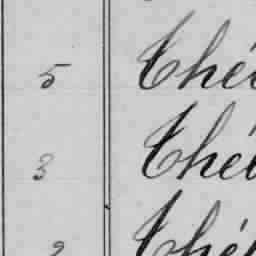 5 Thé
3 Thé
2 Thé